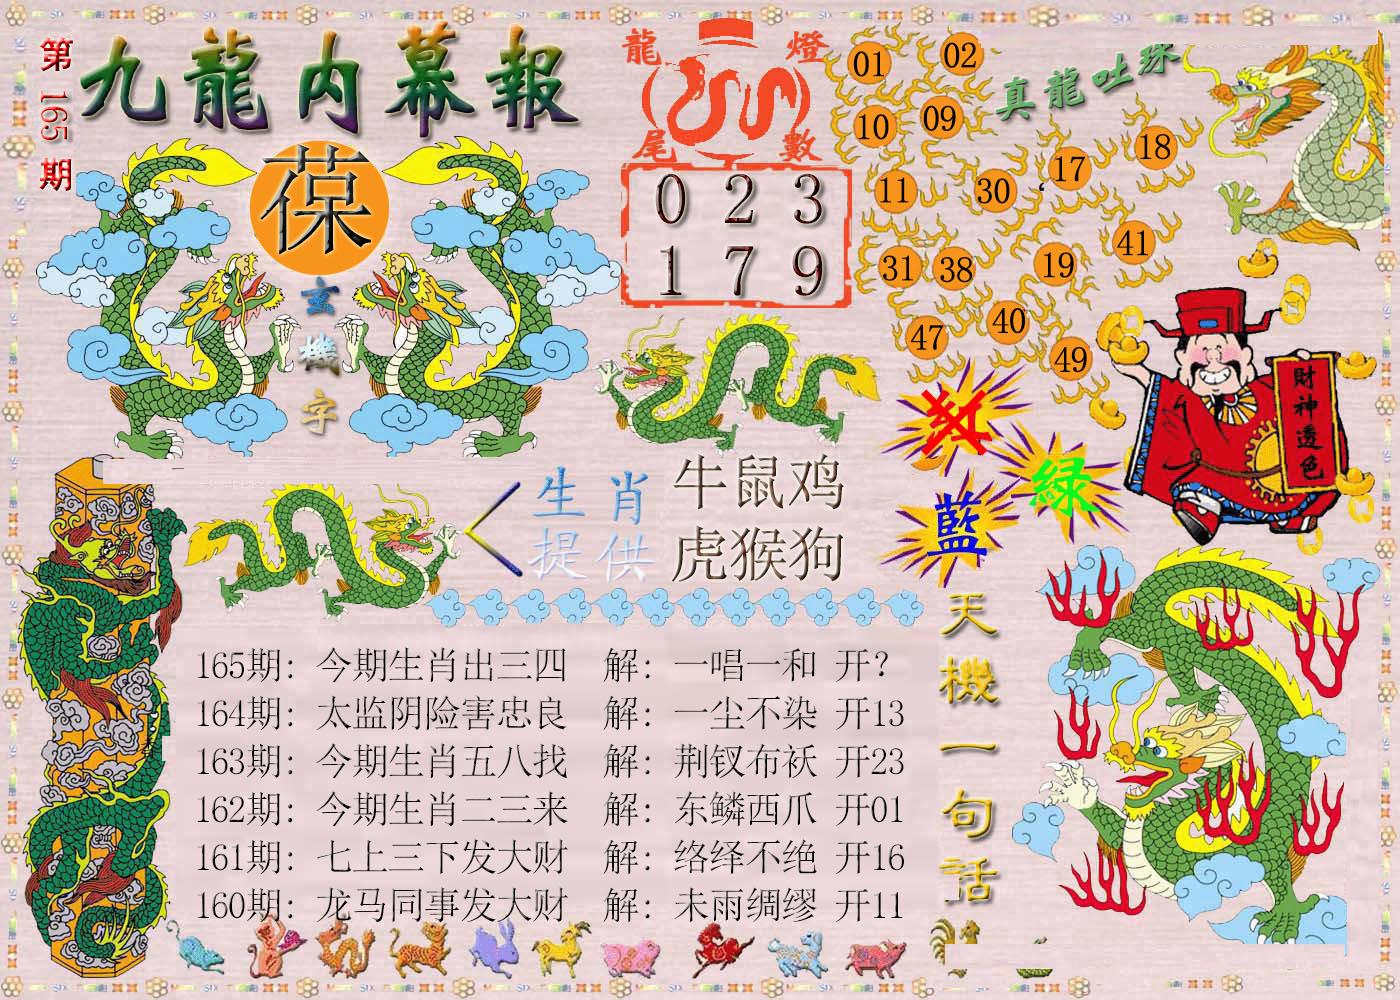 第165期
九龍内幕報
葆
玄機字
龍燈
尾數
0 2 3
1 7 9
真龍吐珠
01 02
10 09
11 30 17 18
31 38 19 41
47 40 49
財神透色
红
緑
藍
生肖
提供
牛鼠鸡
虎猴狗
165期: 今期生肖出三四 解: 一唱一和 开?
164期: 太监阴险害忠良 解: 一尘不染 开13
163期: 今期生肖五八找 解: 荆钗布袄 开23
162期: 今期生肖二三来 解: 东鳞西爪 开01
161期: 七上三下发大财 解: 络绎不绝 开16
160期: 龙马同事发大财 解: 未雨绸缪 开11
天機一句話